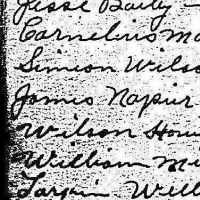 Jesse Baily
Cornelius Ma
Simeon Wilso
James Napier
Wilson How
William Mi
Larkin Will